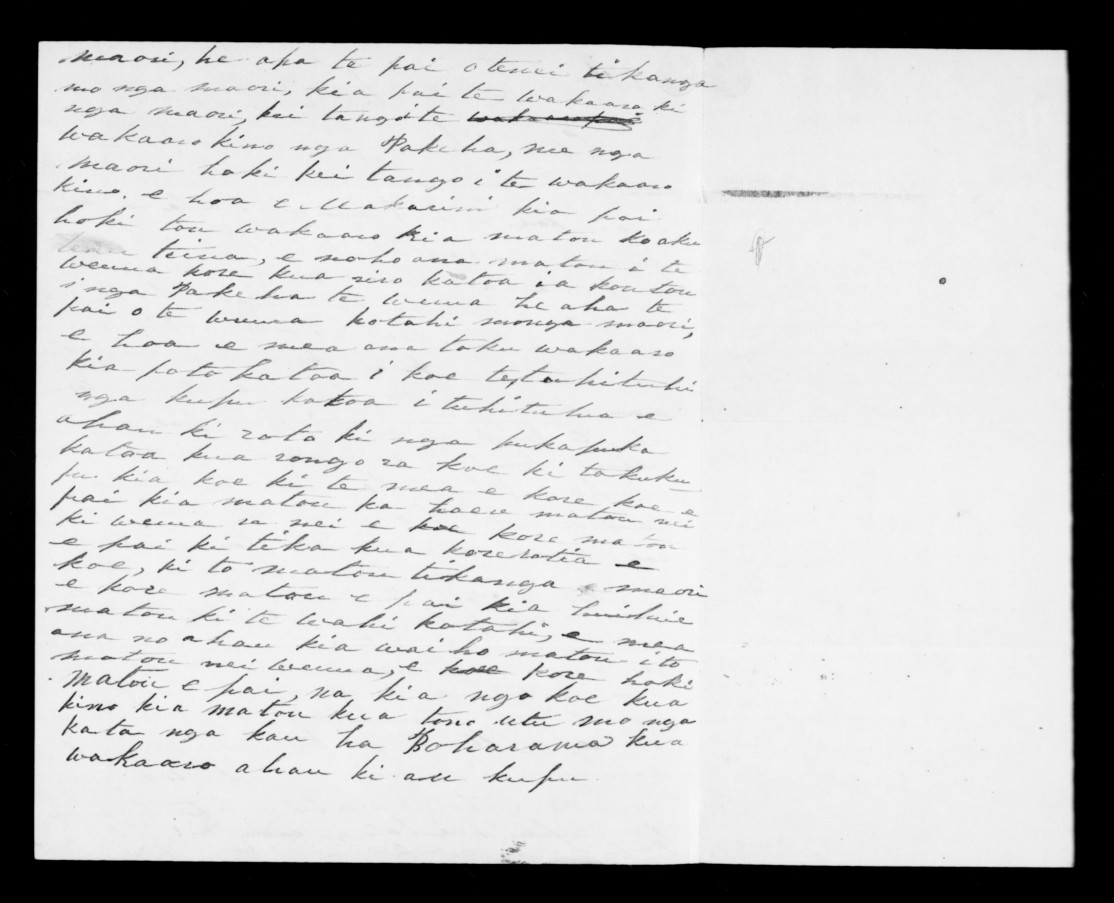 maori, he aha te pai o tenei tikanga
mo nga maori, kia pai te wakaaro ki
nga maori, kei tango i te wakaaro pai
wakaaro kino nga Pakeha, me nga
maori hoki kei tango i te wakaaro
kino. e hoa e Makarini kia pai
hoki tou wakaaro kia matou ko aku
teina, e noho ana matou i te
wenua kore kua riro katoa ia koutou
i nga Pakeha te wenua he aha te
pai o te wenua kotahi monga maori,
e hoa e mea ana toku wakaaro
kia pato katoa i koe te tuhituhi
nga kupu katoa i tuhituhia e
ahau ki roto ki nga pukapuka
katoa kua rongo ra koe ki takuku-
pu kia koe ki te mea e kore koe e
pai kia matou ka haere matou nei
ki wenua ra nei e koe kore matou
e pai ki tika kua korerotia e
koe, ki to matou tikanga maori
e kore matou e pai kia huihuie
matou ki te wahi kotahi, e mea
ana no ahau kia waiho matou i to
matou nei wenua, e koe kore hoki
matou e pai, na kia ngo koe kua
kino kia matou kua tono utu mo nga
kata nga kau ha Boharama kua
wakaaro ahau ki au kupu